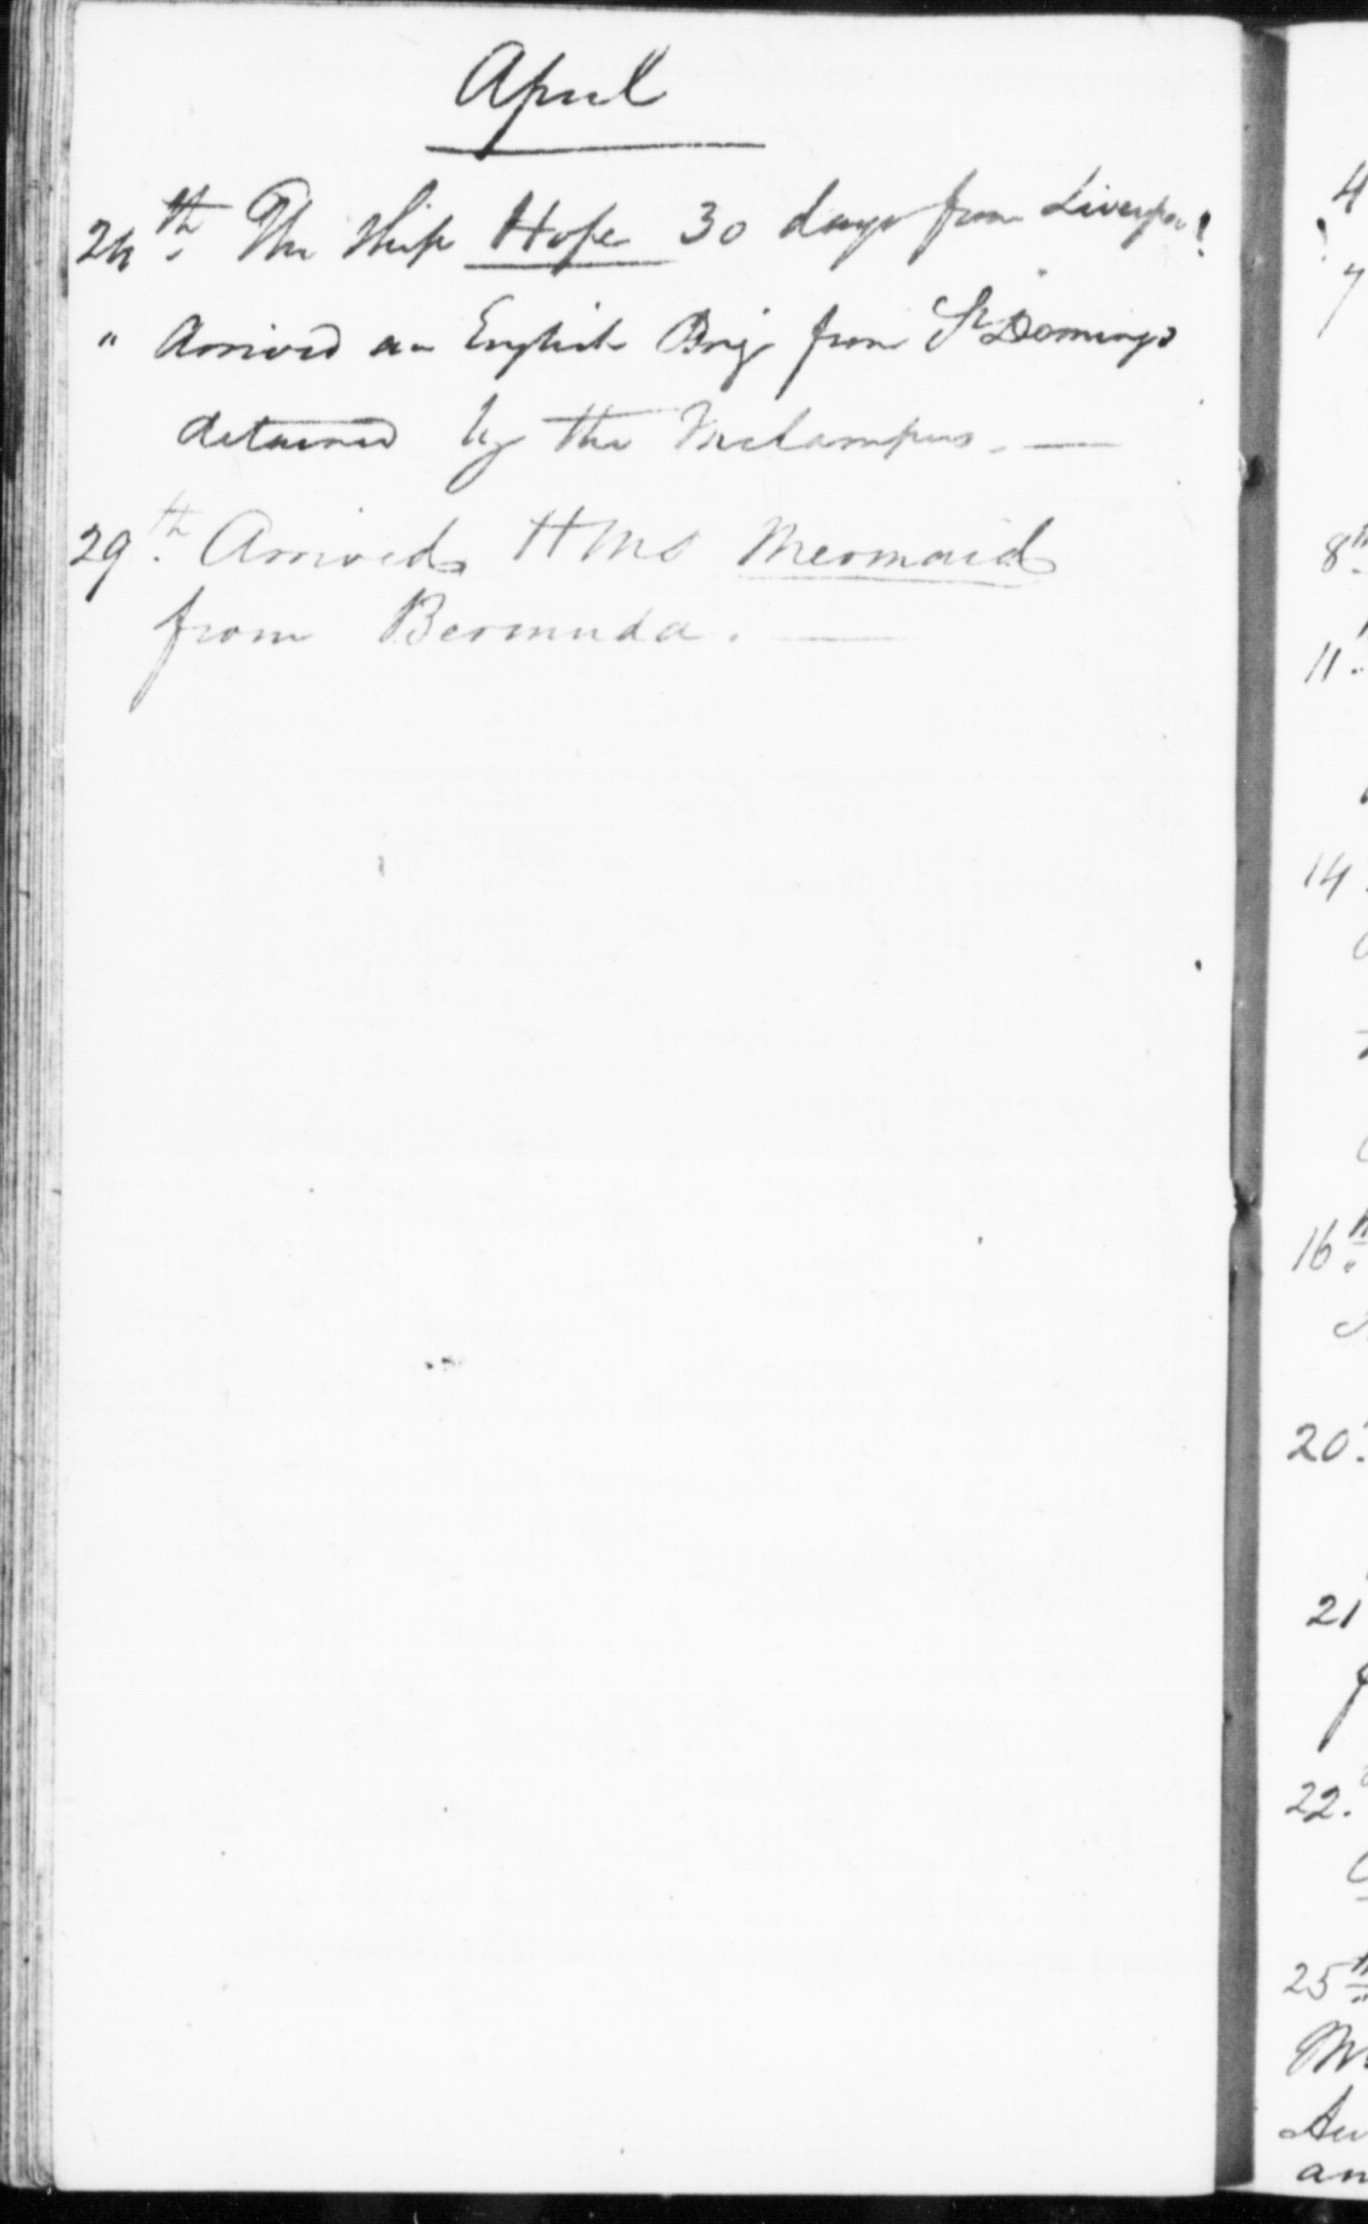 April
24th. The Ship Hope 30 days from Liverpool
" Arrived an English Brig from St Domingo
detained by the Melampus. —
29th. Arrived HMS Mermaid
from Bermuda. —
4
7
8th
11.
14.
16th
20.
21
22.
25th